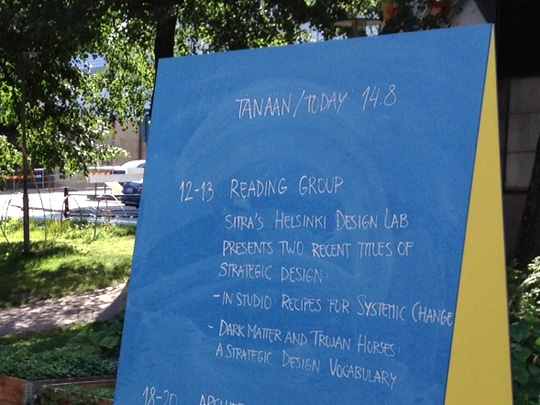 TANAAN/TODAY 14.8
12-13 READING GROUP
SITRA'S HELSINKI DESIGN LAB
PRESENTS TWO RECENT TITLES OF
STRATEGIC DESIGN:
- IN STUDIO: RECIPES FOR SYSTEMIC CHANGE
- DARK MATTER AND TROJAN HORSES:
A STRATEGIC DESIGN VOCABULARY
18-20